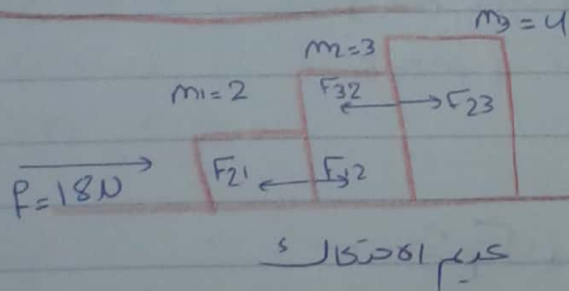 m3 = 4
m2=3
m1=2
F32
F23
F21
F12
F=18N
عديم الاحتكاك